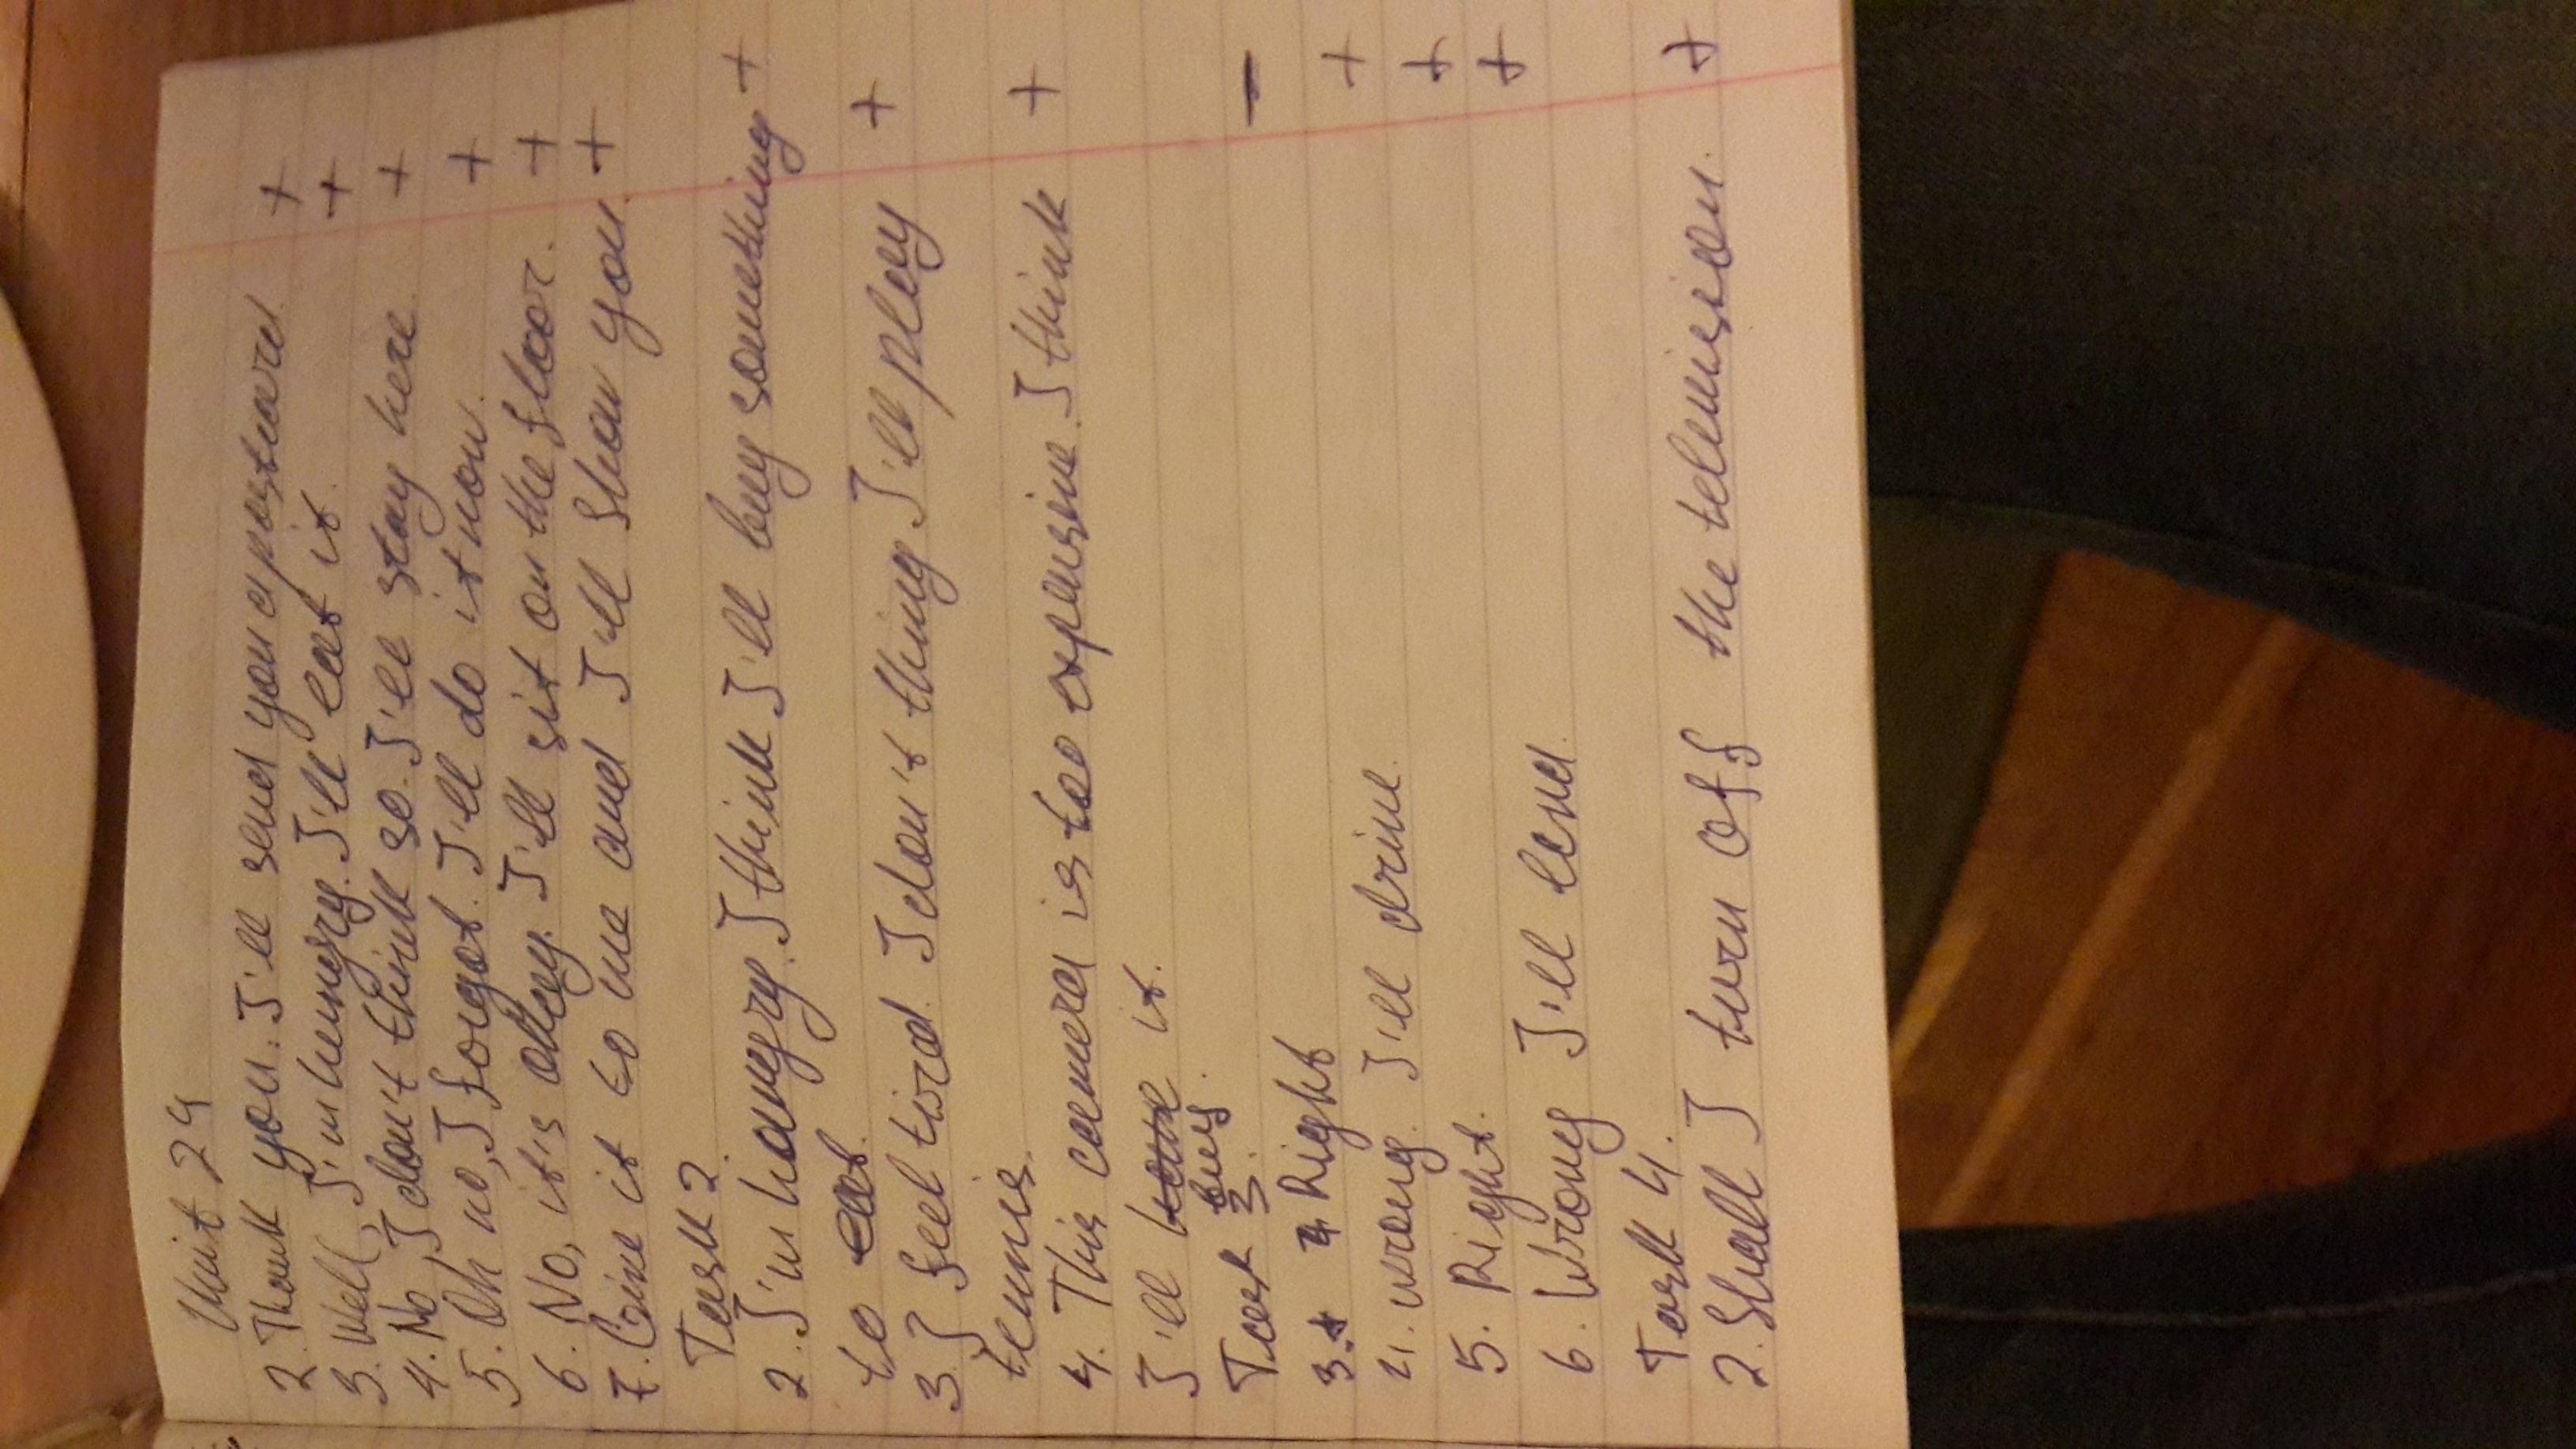 Unit 29
2. Thank you. I'll send you a postcard. +
3. Well, I'm hungry. I'll eat it. +
4. No, I don't think so. I'll stay here. +
5. Oh no, I forgot. I'll do it now. +
6. No, it's okey. I'll sit on the floor. +
7. Give it to me and I'll show you. +
Task 2.
2. I'm hangry. I think I'll buy something +
to eat.
3. I feel tired. I don't thing I'll play +
tennis.
4. This camera is too expensive. I think +
I'll buy it.
Task 3. -
3. Right +
4. wrong. I'll drive. +
5. Right. +
6. Wrong I'll lend.
Task 4.
2. Shall I turn off the television. +